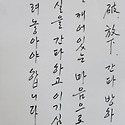 破放 간다 방하
깨어있는 마음으로
실을 간다하고 이기심
려 놓아야 합니다